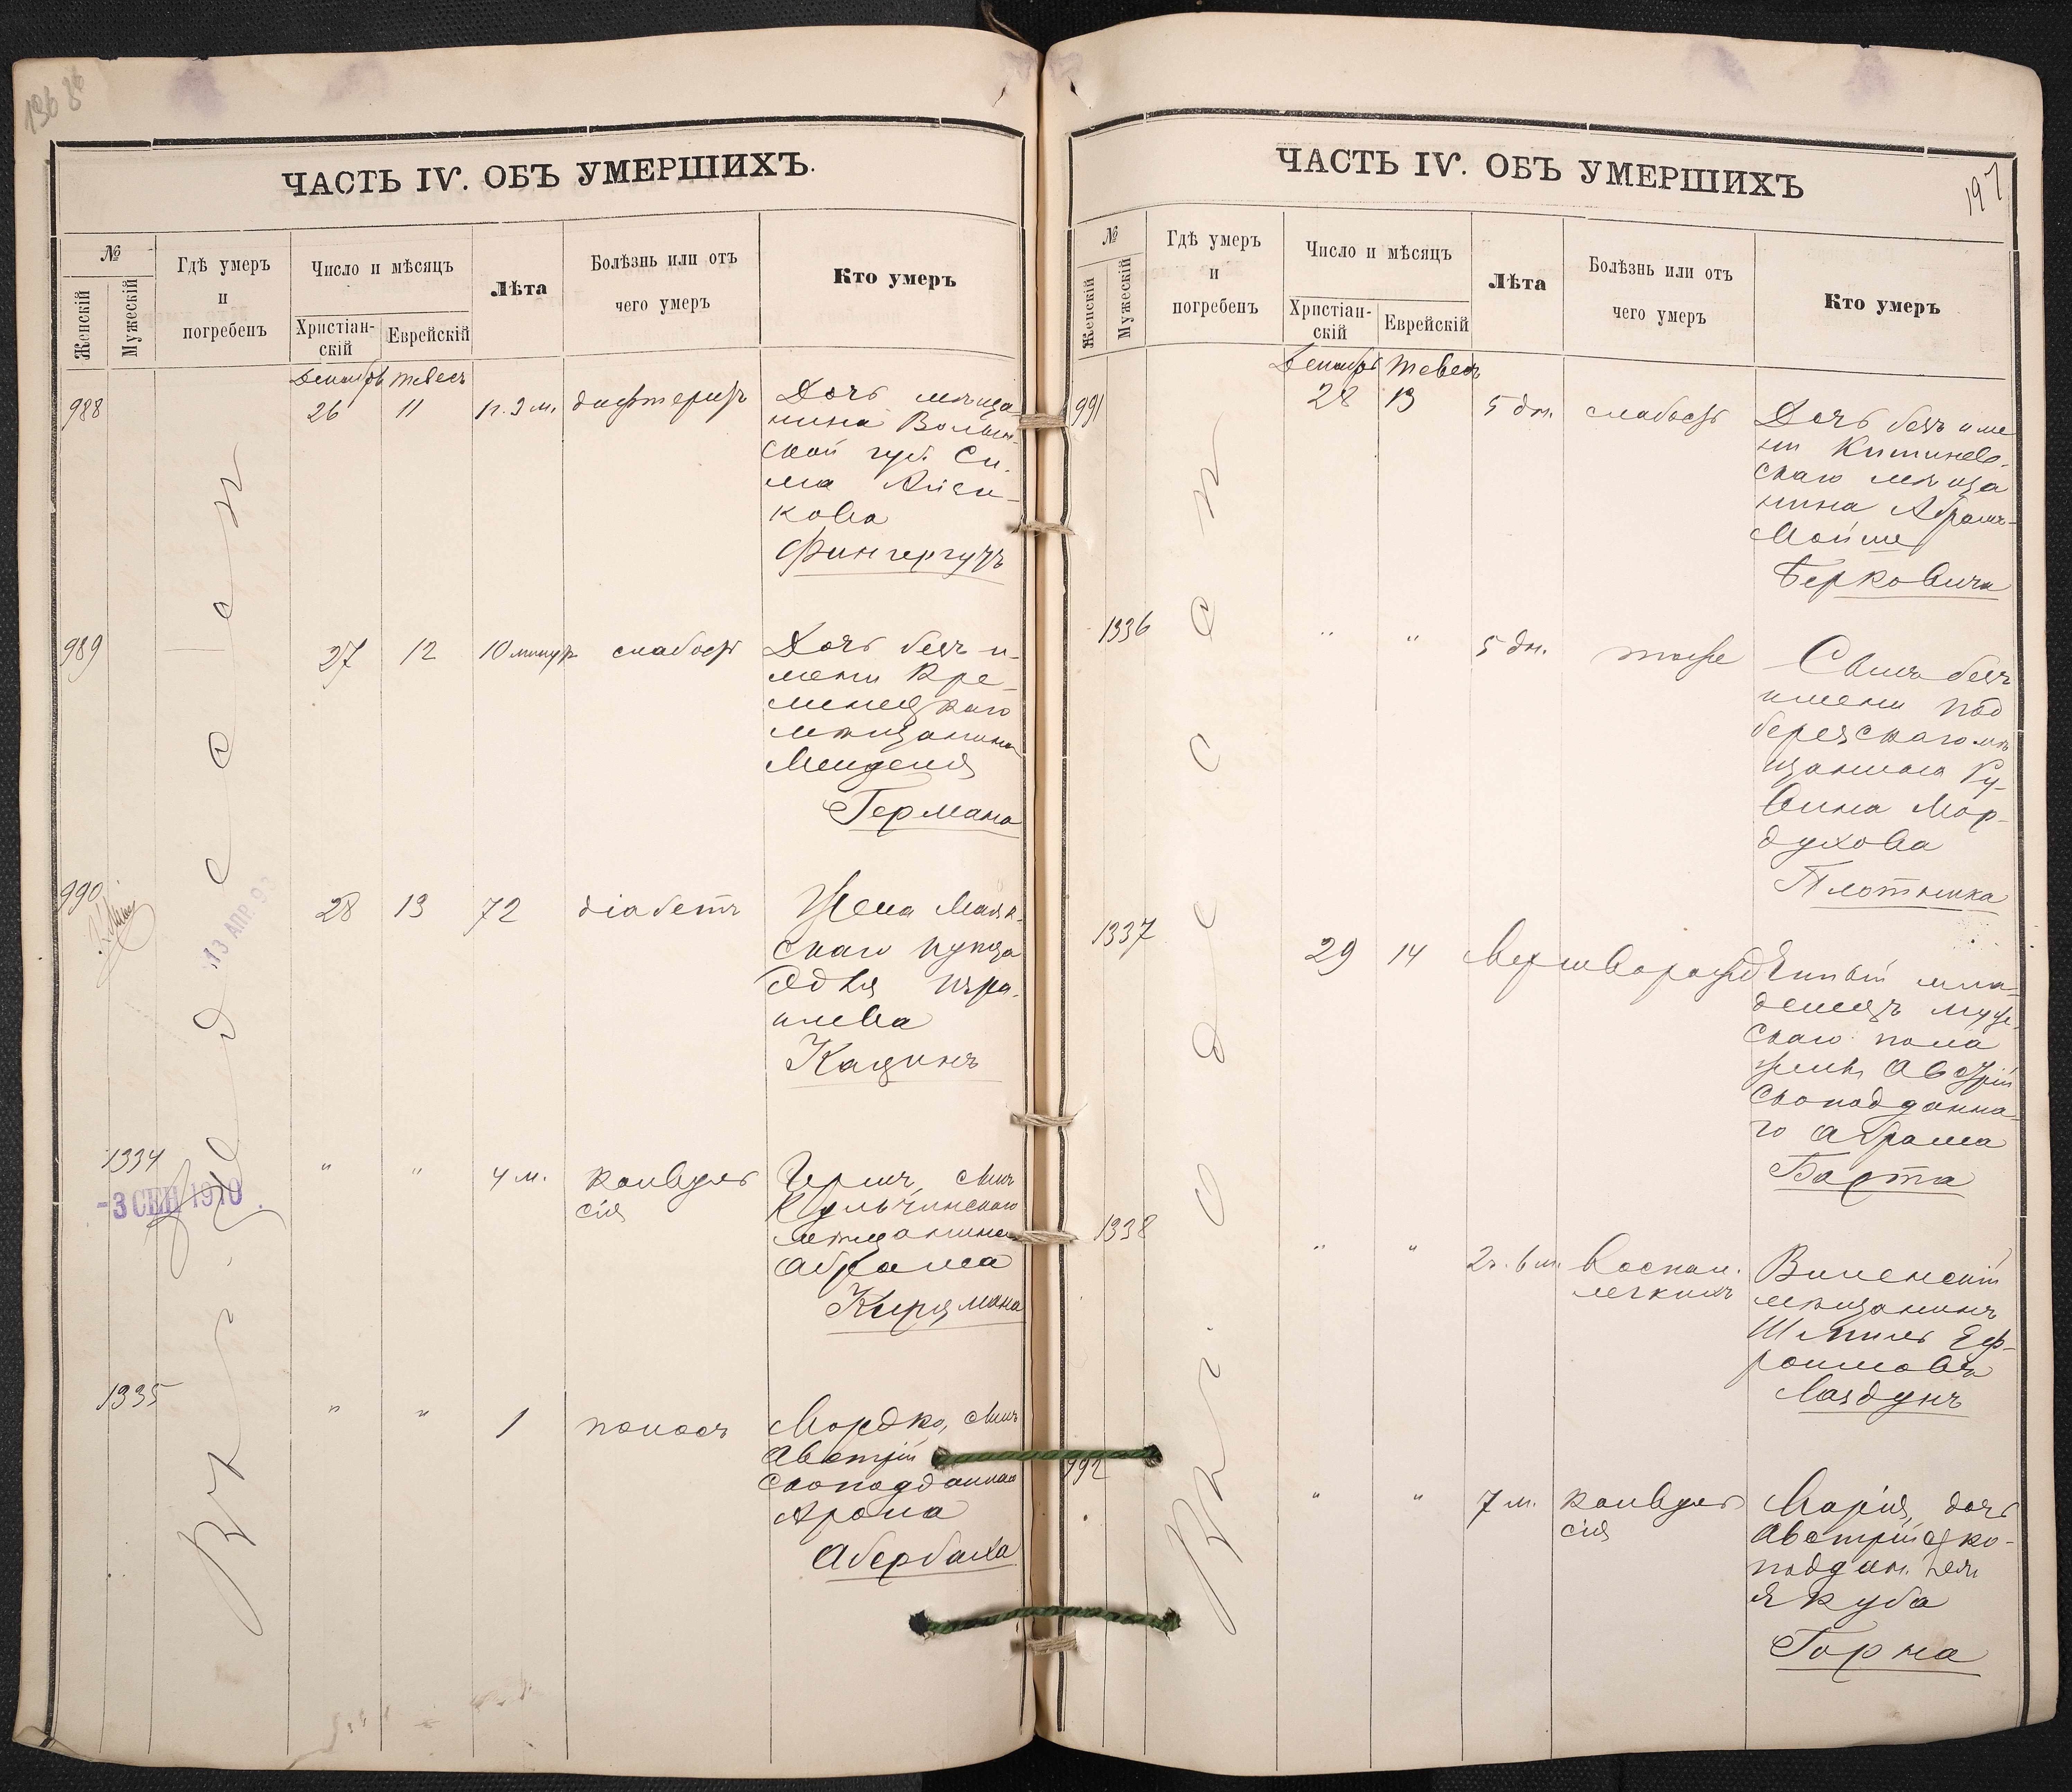 ЧАСТЬ IV. ОБЪ УМЕРШИХЪ.
№
Женскій
Мужескій
Гдѣ умеръ
и
погребенъ
Число и мѣсяцъ
Христіан-
скій
Еврейскій
Лѣта
Болѣзнь или отъ
чего умеръ
Кто умеръ
Декабрь Тевесъ
988
26 11 1 г. 3 м. дифтеритъ
Дочь мѣща-
нина Волын-
ской губ. Си-
ма
кова
Фингергутъ
989
27 12 10 минутъ слабость
Дочь безъ и-
мени Кре-
менецкаго
мѣщанина
Менделя
Германа
990
28 13 72 діабетъ
Жена
скаго купца
Израи-
лева
Кацинъ
13 АПР 93
1334
" " 4 м. конвуль
сія
Герш, сынъ
Кульчинскаго
мѣщанина
Абрама
Кирцмана
-3 СЕН 1910
1335
" " 1 поносъ
Мордко, сынъ
Австрій
скоподданнаго
Арона
Абербаха
Въ г. Одессѣ
ЧАСТЬ IV. ОБЪ УМЕРШИХЪ
197
№
Женскій
Мужескій
Гдѣ умеръ
и
погребенъ
Число и мѣсяцъ
Христіан-
скій
Еврейскій
Лѣта
Болѣзнь или отъ
чего умеръ
Кто умеръ
Декабрь Тевесъ
991
28 13 5 дн. слабость
Дочь безъ име
ни Кишинев-
скаго мѣща
нина Абрамъ-
Мойше
Берковича
1336
" " 5 дн. тоже
Сынъ безъ
имени Под
березскаго мѣ
щанина Ру-
вина Мор-
духова
Плотника
1337
29 14 Мертворожденный мла-
денецъ муже-
скаго пола
жены Австрій
скоподданна-
го Абрама
Барта
1338
" " 2 г. 6 м. воспал.
легкихъ
Виленскій
мѣщанинъ
Шмуль Еф-
роимовъ
Лаздунъ
992
" " 7 м. конвуль
сія
Марія, дочь
Австрійско-
поддан.
Якуба
Горна
Въ г. Одессѣ